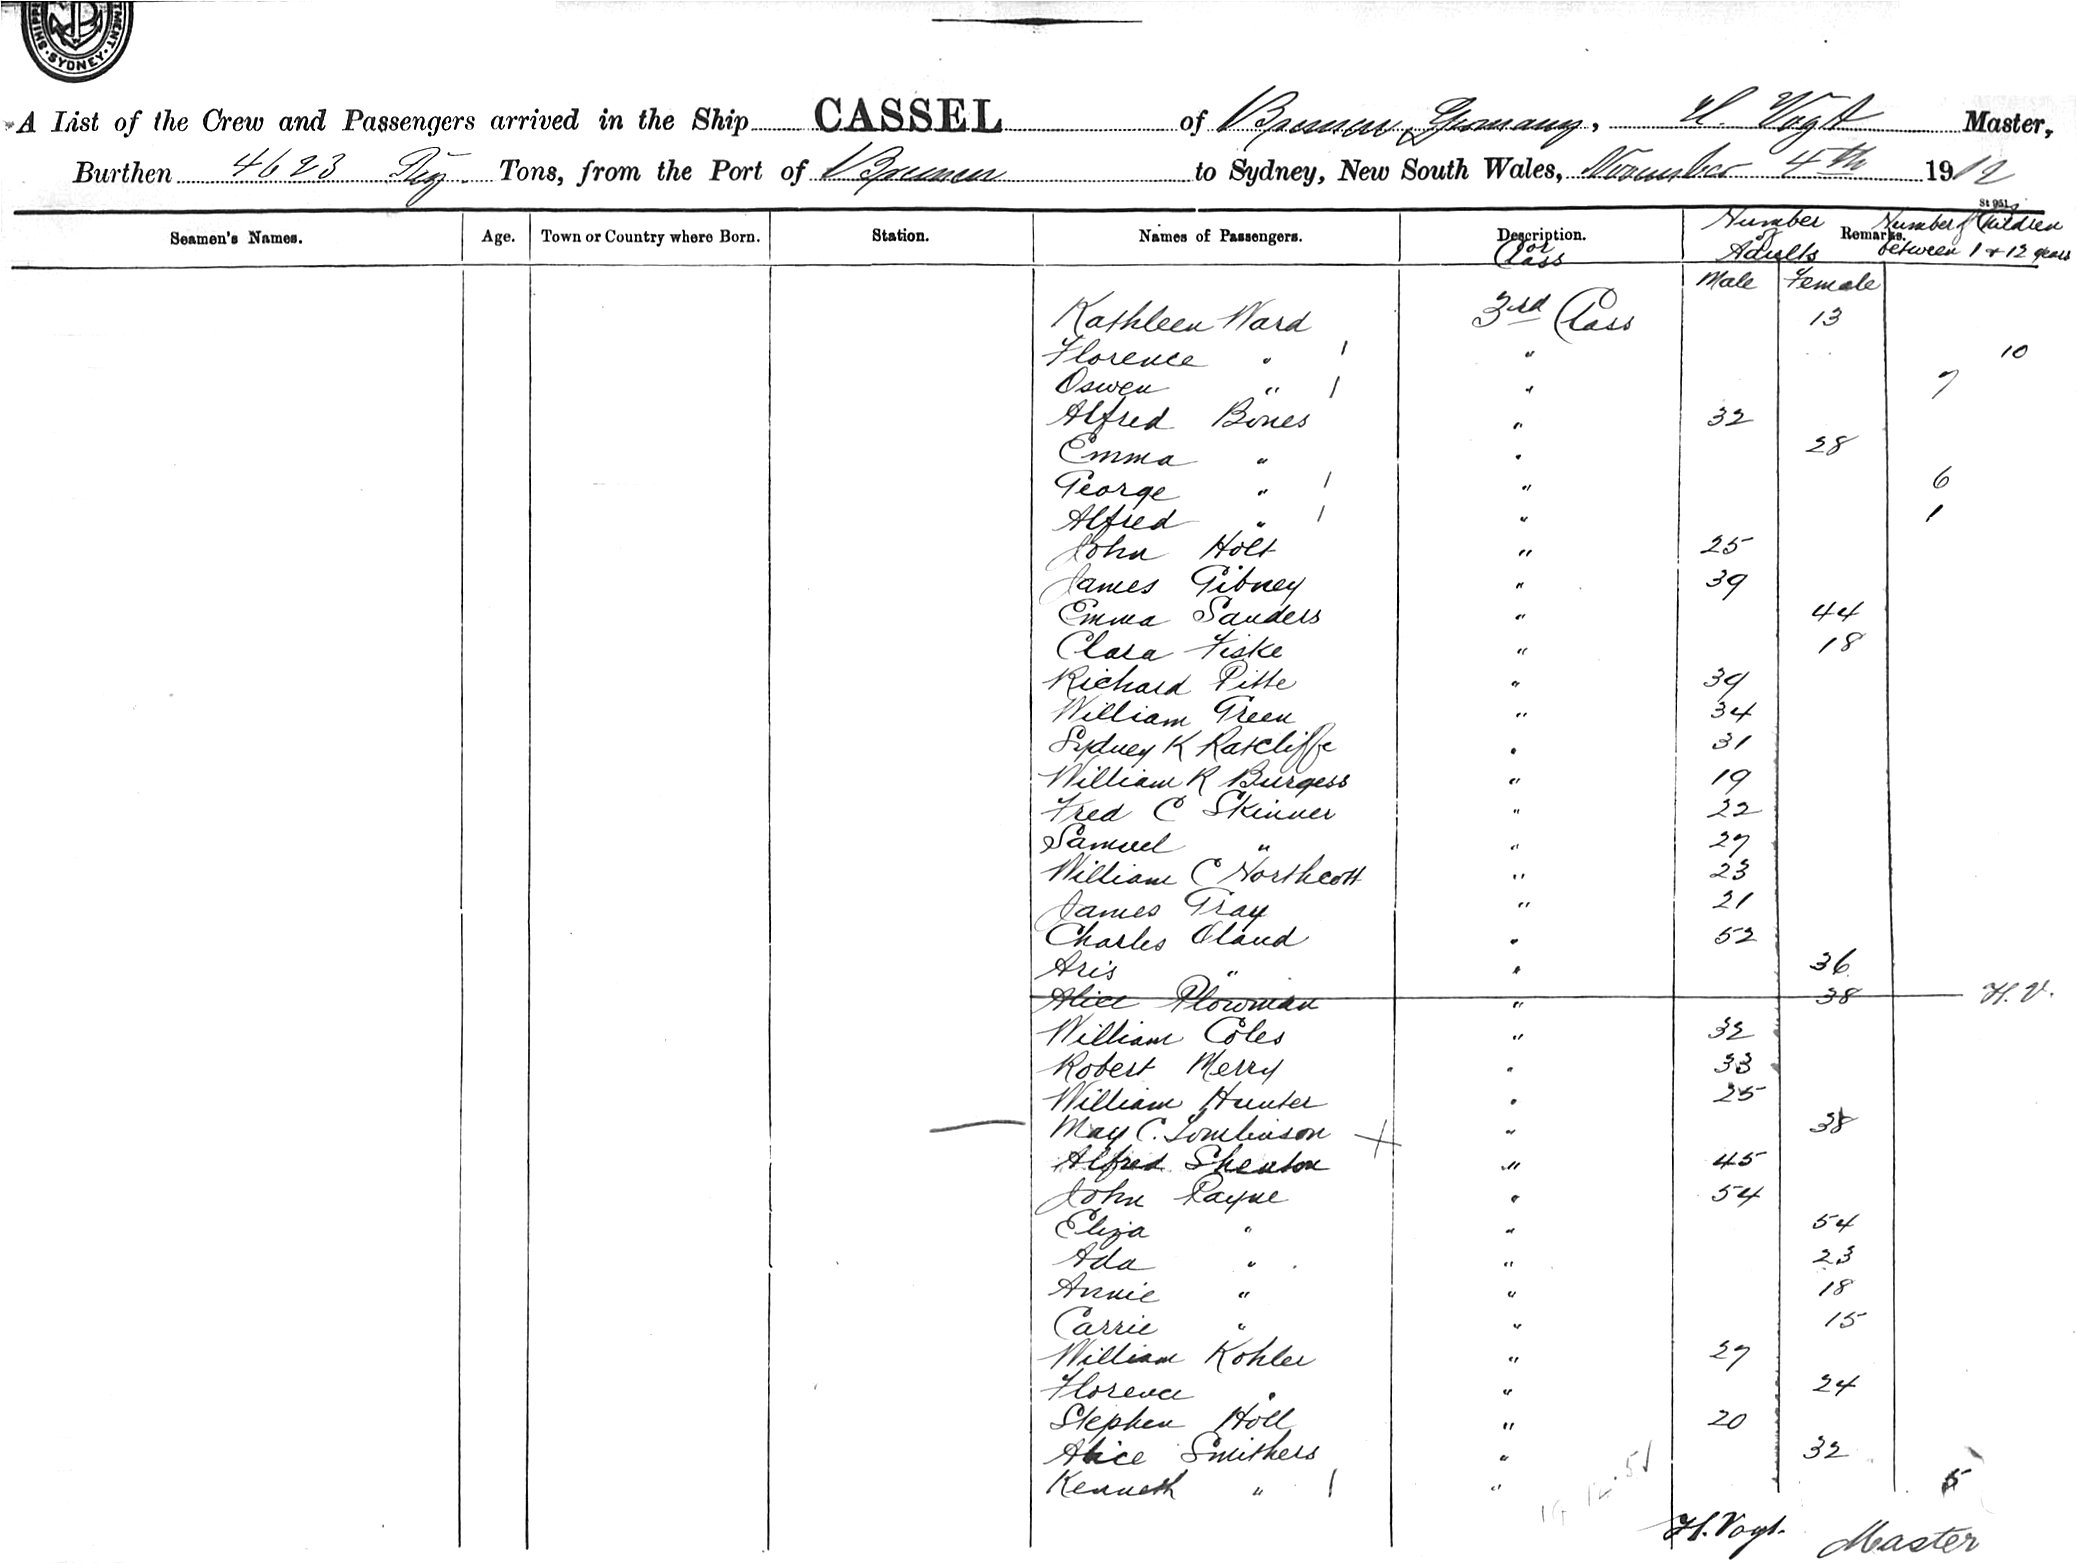 SYDNEY
A List of the Crew and Passengers arrived in the Ship CASSEL of Bremen Germany, H. Vogt Master,
Burthen 4623 Reg. Tons, from the Port of Bremen to Sydney, New South Wales, November 4th 1912
St 951
Seamen's Names. Age. Town or Country where Born. Station. Names of Passengers. Description. or Class Number of Adults Remarks. Number of Children between 1 & 12 years
Male Female
Kathleen Ward 3rd Class 13
Florence " 1 " 10
Oswen " 1 " 7
Alfred Bones " 32
Emma " " 28
George " 1 " 6
Alfred " 1 " 1
John Holt " 25
James Gibney " 39
Emma Sanders " 44
Clara Fiske " 18
Richard Pitte " 39
William Green " 34
Sydney K Ratcliffe " 31
William R Burgess " 19
Fred C Skinner " 22
Samuel " " 27
William C Northcott " 23
James Gray " 21
Charles Oland " 52
Aris " " 36
Alice Plowman " 38 H.V.
William Coles " 32
Robert Merry " 33
William Hunter " 25
May C. Tomlinson " 38
Alfred Shenton " 45
John Payne " 54
Eliza " " 54
Ada " " 23
Annie " " 18
Carrie " " 15
William Kohler " 27
Florence " " 24
Stephen Holl " 20
Alice Smithers " 32
Kenneth " 1 " 5
H. Vogt. Master